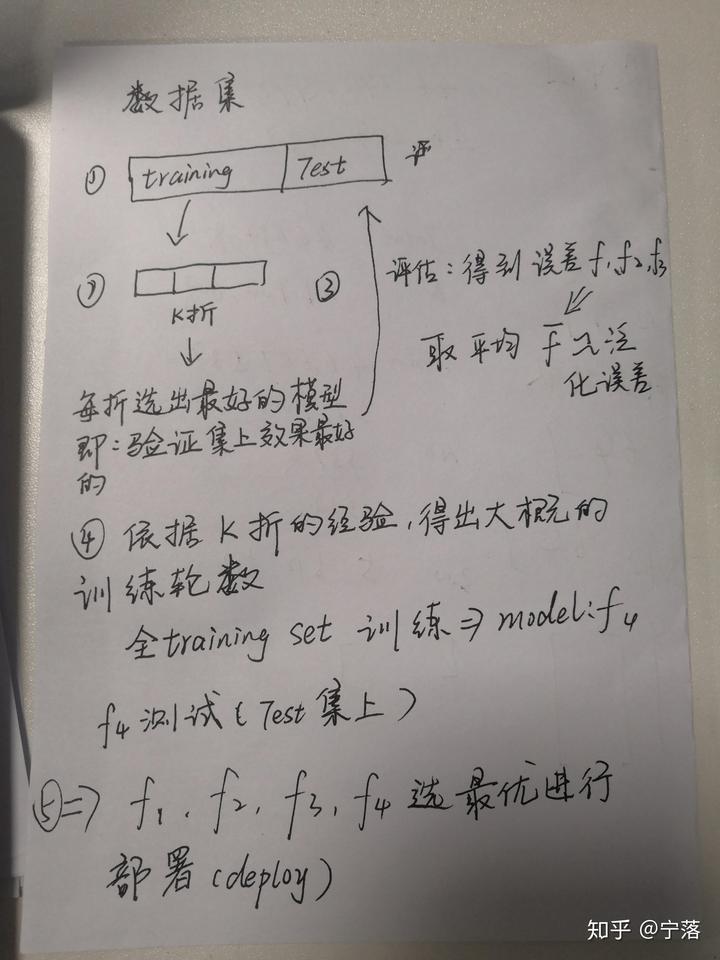 数据集
① training Test 评
② ③
K折
评估：得到误差 f₁,f₂,f₃
取平均 f̄ 泛
化误差
每折选出最好的模型
即：验证集上效果最好
的
④ 依据K折的经验，得出大概的
训练轮数
全training set 训练⇒model:f₄
f₄测试（Test集上）
⑤⇒ f₁、f₂，f₃，f₄ 选最优进行
部署（deploy）
知乎 @宁落